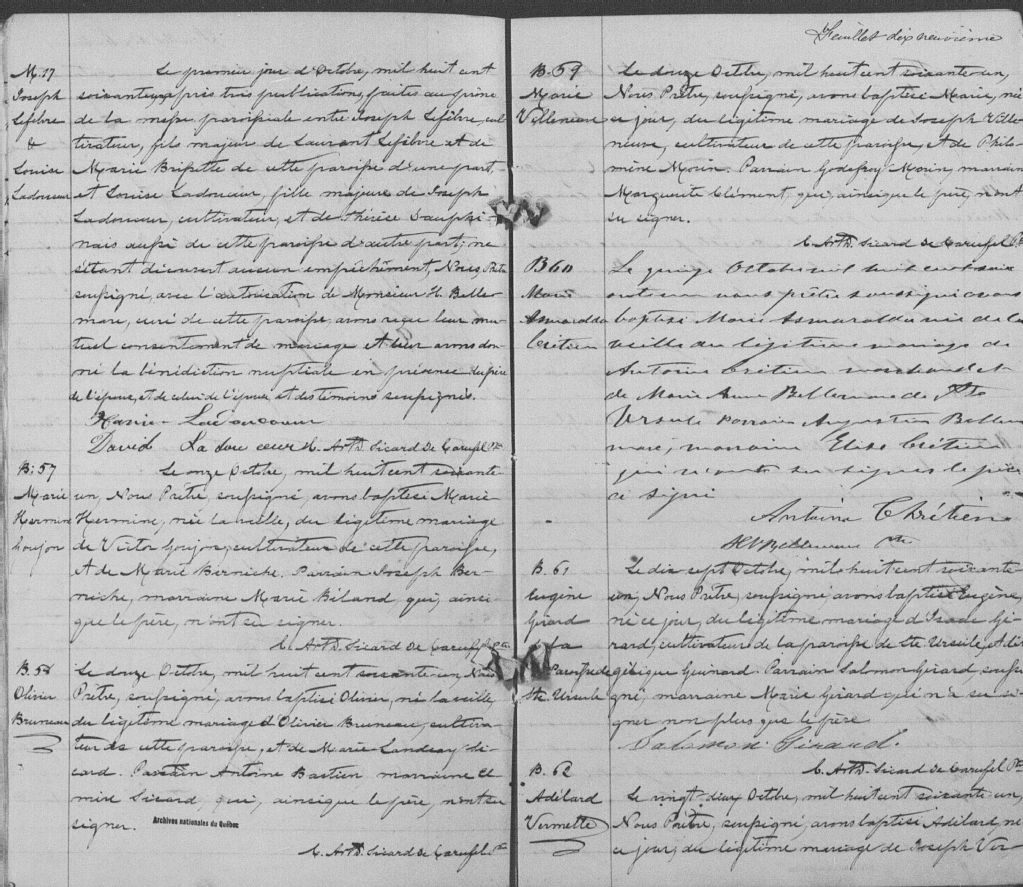 M. 17
Joseph
Lefebre
&
Louise
Ladouceur
Le premier jour d'Octbre, mil huit cent
soixante, après trois publications, faites au prône
de la messe paroissiale entre Joseph Lefebre, cul
tivateur, fils majeur de Laurent Lefebvre et de
Marie Brissette de cette paroisse d'une part,
et Louise Ladouceur, fille majeure de Joseph
Ladouceur, cultivateur, et de Thérèse Dauphi-
nais aussi de cette paroisse d'autre part; ne
s'étant découvert aucun empêchement, Nous Prêtre
soussigné, avec l'autorisation de Monsieur H. Belle-
mare, curé de cette paroisse, avons reçu leur mu-
tuel consentement de mariage et leur avons don-
né la bénédiction nuptiale en présence du père
de l'époux, et de celui de l'épouse, et des témoins soussignés.
David Ladouceur
L. Arth. Sicard de Carufel Ptre
B. 57
Marie
Hermine
Goujon
Le onze Octbre, mil huit cent soixante
un, Nous Prêtre, soussigné, avons baptisé Marie
Hermine, née la veille, du légitime mariage
de Victor Goujon, cultivateur de cette paroisse,
et de Marie Berniche. Parrain Joseph Ber-
niche, marraine Marie Biland, qui, ainsi
que le père, n'ont su signer.
L. Arth. Sicard de Carufel Ptre
B. 58
Olivier
Bruneau
Le douze Octbre, mil huit cent soixante un, Nous
Prêtre, soussigné, avons baptisé Olivier, né la veille
du légitime mariage d'Olivier Bruneau, cultiva-
teur de cette paroisse, et de Marie Landry Si-
card. Parrain Antoine Bastien, marraine El
mire Sicard, qui, ainsi que le père, n'ont su
signer.
Archives nationales du Québec
L. Arth. Sicard de Carufel Ptre
Feuillet dix neuvième
B. 59
Marie
Villeneuve
Le douze Octbre, mil huit cent soixante un,
Nous Prêtre, soussigné, avons baptisé Marie, née
ce jour, du légitime mariage de Joseph Ville
neuve, cultivateur de cette paroisse, et de Philo-
mène Morin. Parrain Godefroy Morin, marraine
Marguerite Clément, qui, ainsi que le père, n'ont
su signer.
L. Arth. Sicard de Carufel Ptre
B 60
Marie
Asmaralda
Crétien
Le quinze Octobre mil huit cent soix
ante un nous prêtre soussigné avons
baptisé Marie Asmaralda née de la
veille du légitime mariage de
Antoine Crétien marchand et
de Marie Anne Bellemare de Ste
Ursule parrain Augustin Belle
mare, marraine Elise Crétien
qui n'ont su signer le père
a signé
Antoine Chrétien
H Bellemare Ptre
B. 61
Eugène
Girard
de la
Paroisse de
Ste Ursule
Le dix sept Octbre, mil huit cent soixante
un, Nous Prêtre, soussigné, avons baptisé Eugène,
né ce jour, du légitime mariage d'Isaac Gi-
rard, cultivateur de la paroisse de Ste Ursule, et d'An
gélique Guinard. Parrain Salomon Girard, soussi
gné, marraine Marie Girard qui n'a su si-
gner non plus que le père.
Salomon Giraud.
L. Arth. Sicard de Carufel Ptre
B. 62
Adélard
Vermette
Le vingt deux Octbre, mil huit cent soixante un,
Nous Prêtre, soussigné, avons baptisé Adélard, né
ce jour, du légitime mariage de Joseph Ver-